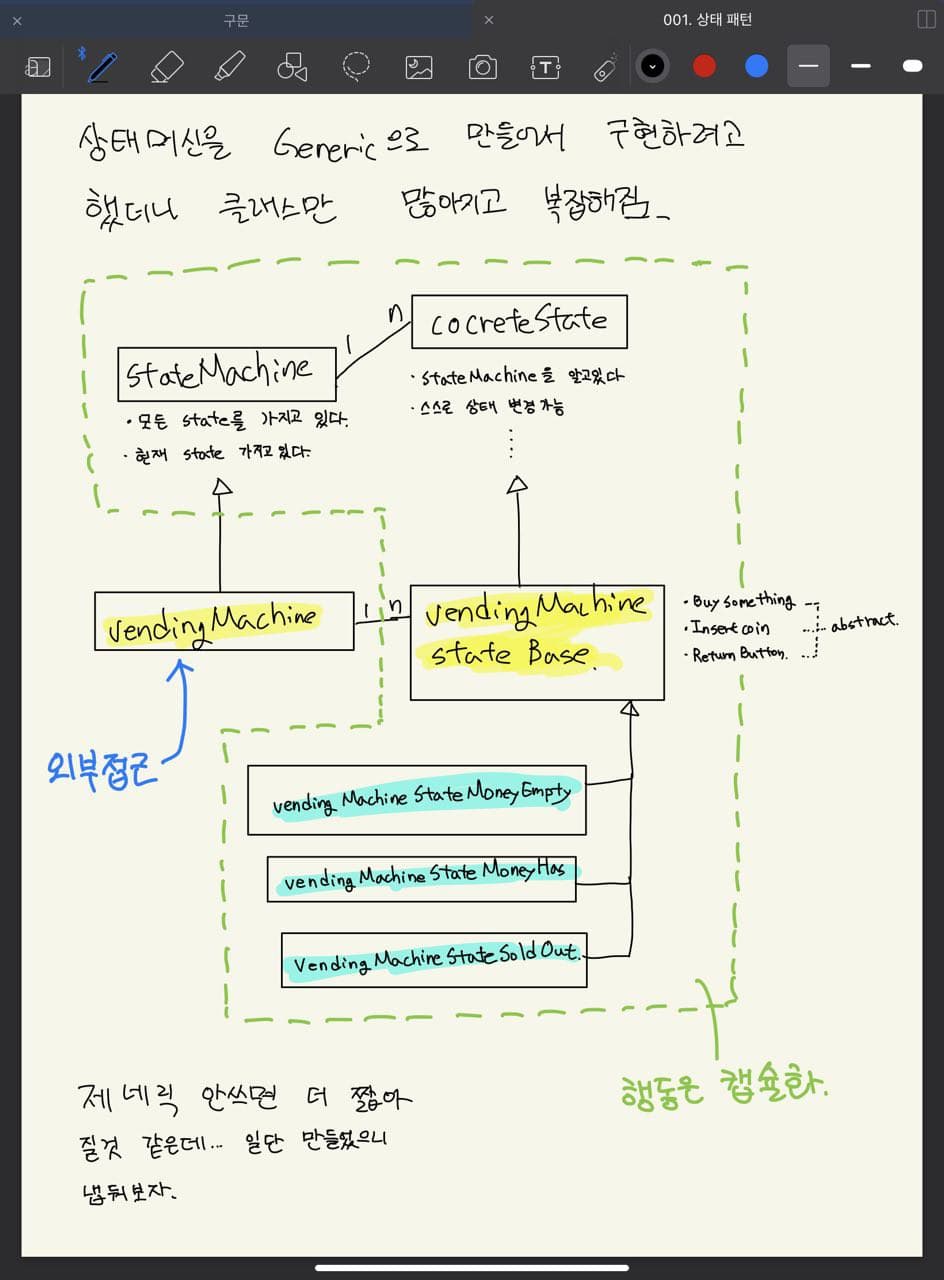 구문
001. 상태 패턴
상태머신을 Generic으로 만들어서 구현하려고
했더니 클래스만 많아지고 복잡해짐_
cocreteState
n
1
stateMachine
· stateMachine을 알고있다
· 스스로 상태 변경가능
· 모든 state를 가지고 있다.
· 현재 state 가지고 있다.
vendingMachine
1 n
vendingMachine
state Base.
· Buy something
· Insert coin
· Return Button.
abstract.
외부접근
vending Machine State MoneyEmpty
vending Machine State MoneyHas
Vending Machine State Sold Out.
행동은 캡슐화.
제네릭 안쓰면 더 짧아
질것 같은데... 일단 만들었으니
냅둬보자.